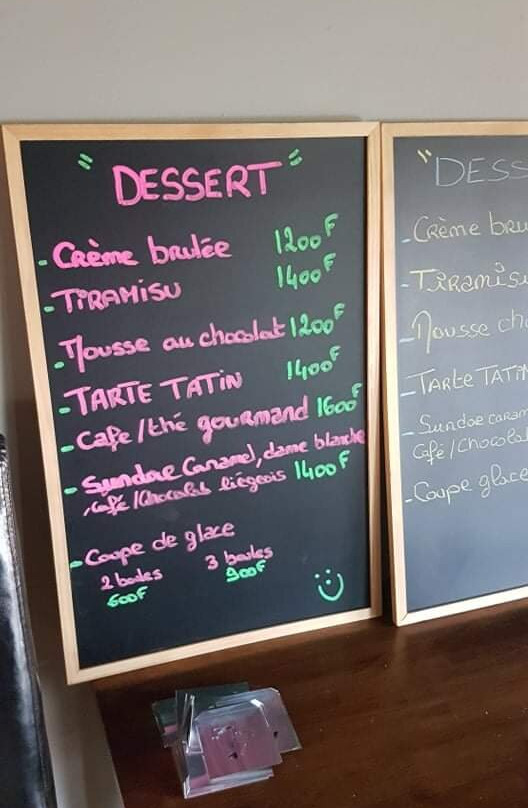 " DESSERT "
- Crème brulée 1200F
- TIRAMISU 1400F
- Mousse au chocolat 1200F
- TARTE TATIN 1400F
- Café/thé gourmand 1600F
- Sundae Caramel, dame blanche
, Café/Chocolat liégeois 1400F
- Coupe de glace
2 boules 3 boules
600F 900F
" DESS
- Crème bru
- Tiramisu
- Mousse cho
- Tarte TATIN
- Sundae caram
Café/Chocolat
- Coupe glace